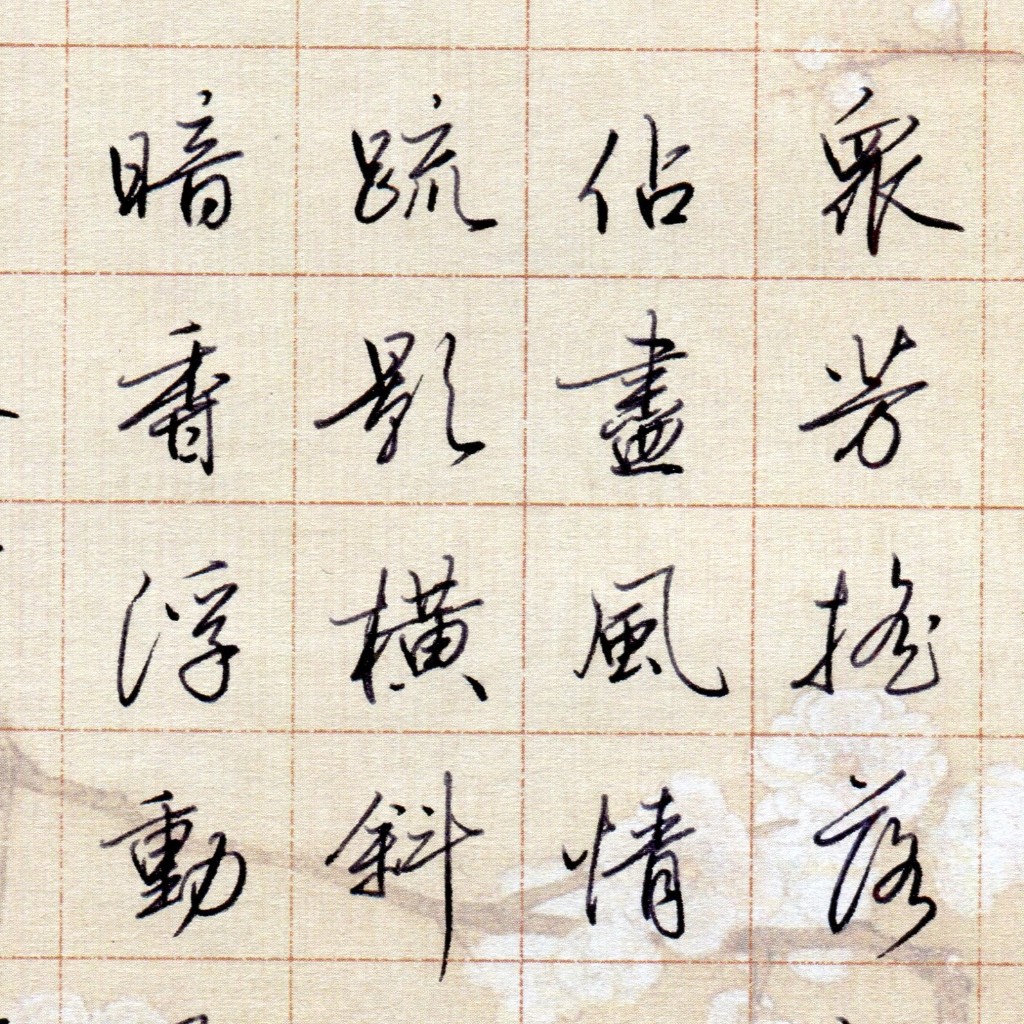 眾芳搖落
佔盡風情
疏影橫斜
暗香浮動